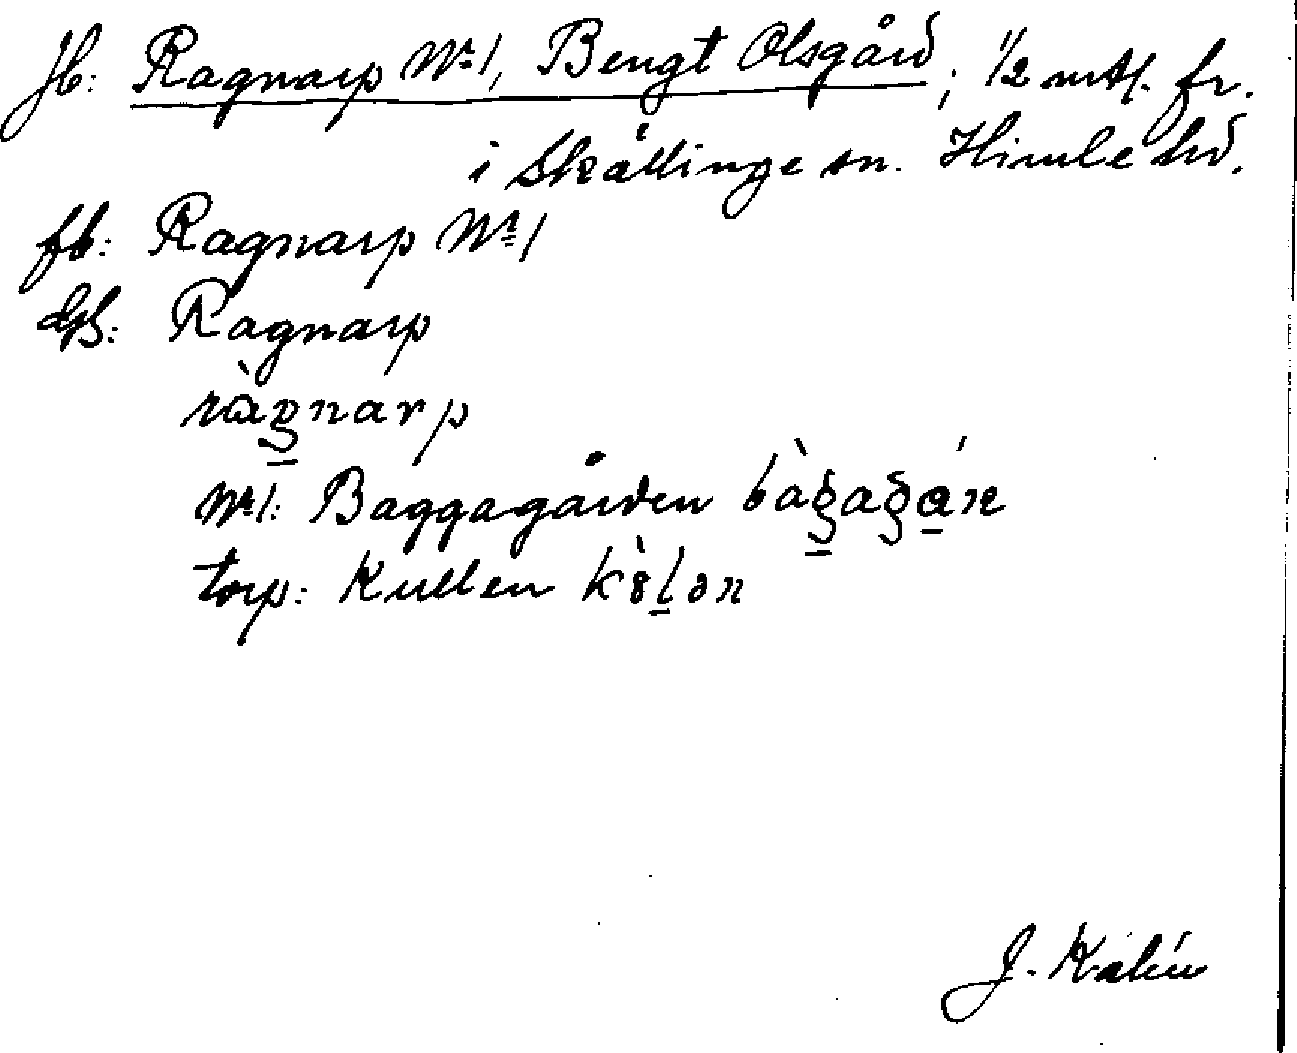 Jb: Ragnarp Nr 1, Bengt Olsgård; 1/2 mtl. fr.
i Skällinge sn. Himle hd.
fb: Ragnarp Nr 1
Gb: Ragnarp
ràgnarp
Nr 1: Baggagården bàgagán
torp: Kullen
J. Kalén